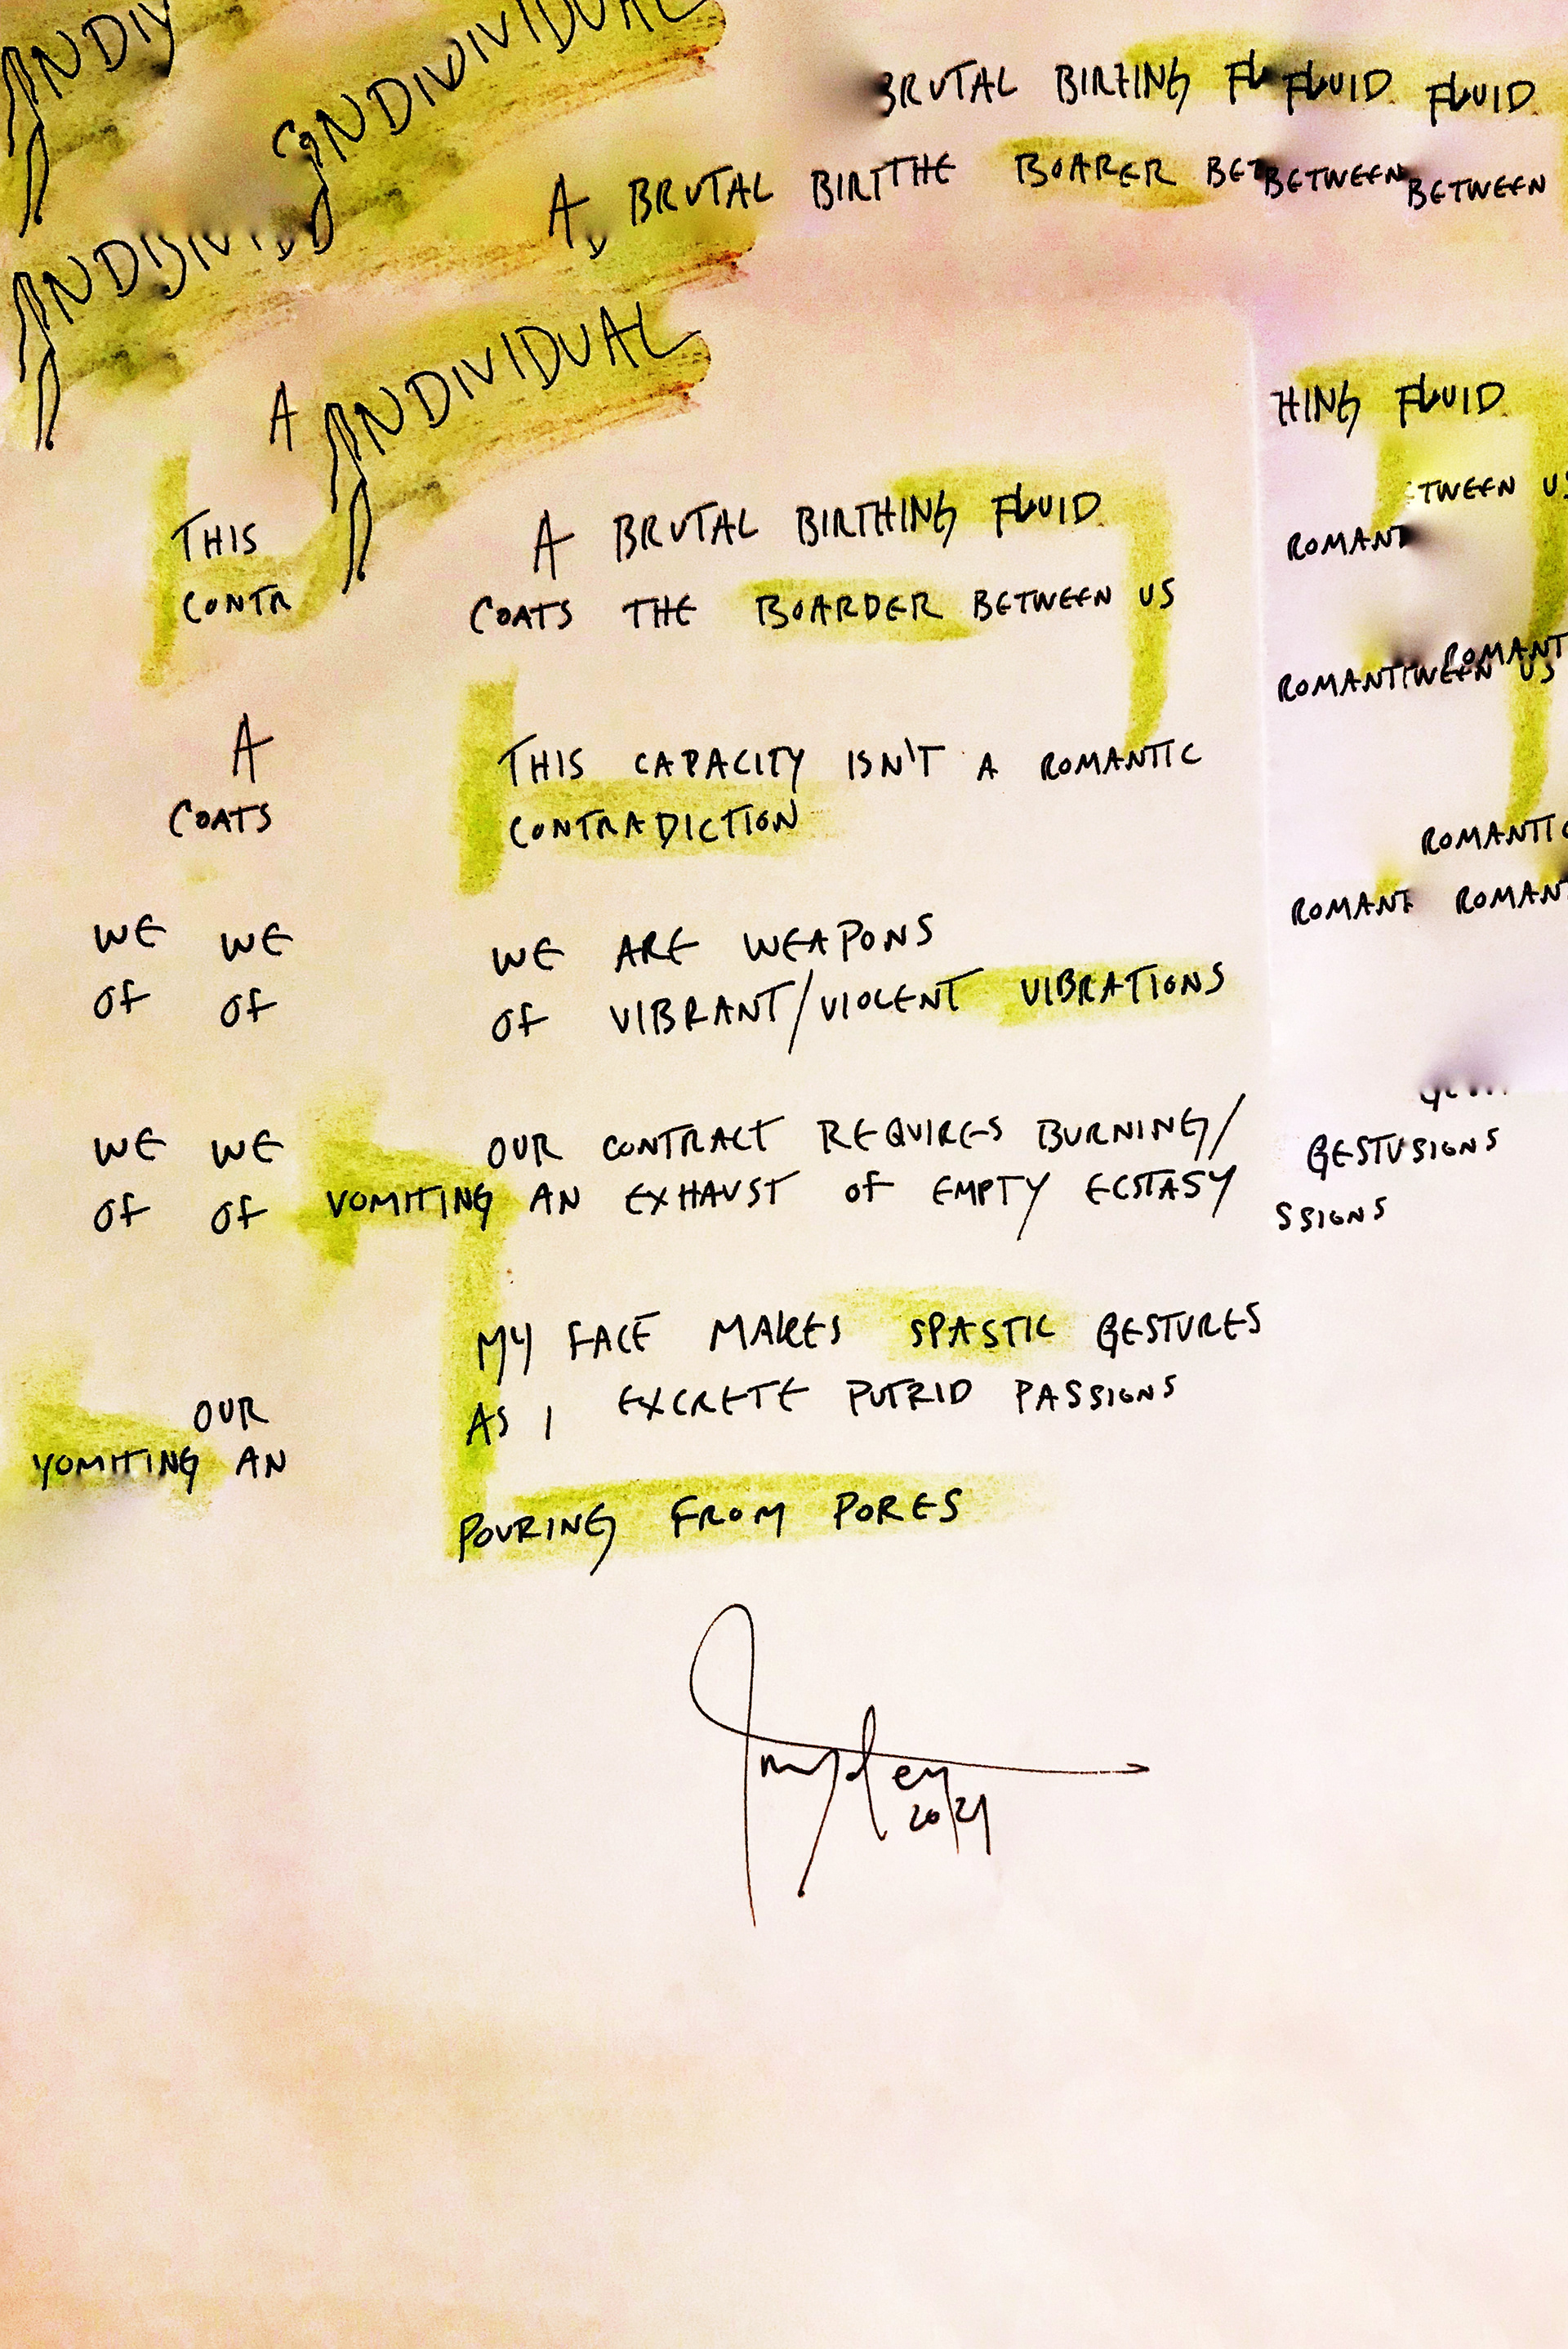 INDIV
INDIVIDUAL
BRUTAL BIRTHING FL FLUID FLUID
A BRUTAL BIRTTHE BOARER BET BETWEEN BETWEEN
A INDIVIDUAL
HING FLUID
THIS
CONTR
A BRUTAL BIRTHING FLUID
COATS THE BOARDER BETWEEN US
ETWEEN US
ROMANT
ROMANT
ROMANTTWEEN US
A
COATS
THIS CAPACITY ISN'T A ROMANTIC
CONTRADICTION
ROMANTIC
ROMANT ROMANT
WE WE
OF OF
WE ARE WEAPONS
OF VIBRANT/VIOLENT VIBRATIONS
WE WE
OF OF
OUR CONTRACT REQUIRES BURNING/
VOMITING AN EXHAUST OF EMPTY ECSTASY
GESTUSIONS
SSIONS
MY FACE MAKES SPASTIC GESTURES
AS I EXCRETE PUTRID PASSIONS
OUR
VOMITING AN
POURING FROM PORES
2021